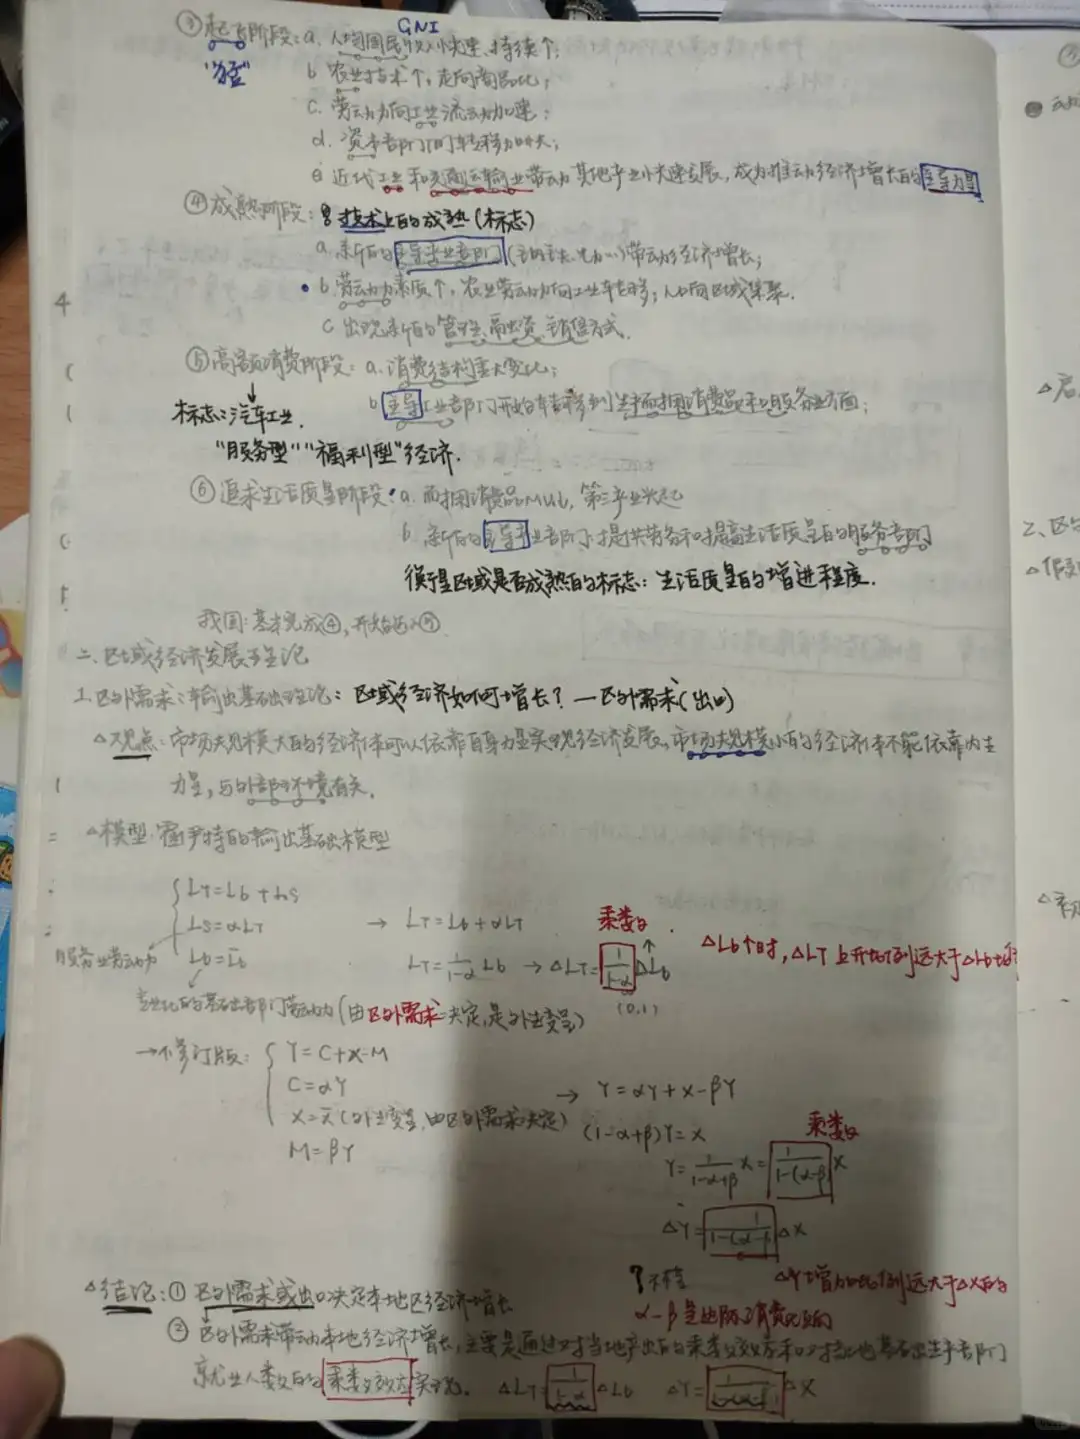 GNI
③起飞阶段：a. 人均国民收入快速、持续个；
"冲突"
b 农业技术个，走向商品化；
c. 劳动力向工业流动加速；
d. 资本部门间转移加大；
e 近代工业和交通运输业带动其他产业快速发展，成为推动经济增长的主导力量
④成熟阶段：技术上的成熟（标志）
a. 新的主导产业部门（钢铁、电力…）带动经济增长；
b. 劳动力素质个，农业劳动力向工业转移；人口向区域集聚.
c 出现新的管理、融资、销售方式.
⑤高额消费阶段：a. 消费结构重大变化；
标志：汽车工业.
b 主导工业部门开始转移到生产耐用消费品和服务业方面；
"服务型""福利型"经济.
⑥追求生活质量阶段：a. 耐用消费品MU↓，第三产业兴起
b. 新的主导产业部门：提供劳务和提高生活质量的服务部门
衡量区域是否成熟的标志：生活质量的增进程度.
我国：基本完成④，开始进入⑤
二、区域经济发展理论
1. 区外需求：输出基础理论：区域经济如何增长？—区外需求（出口）
△观点：市场规模大的经济体可以依靠自身力量实现经济发展，市场规模小的经济体不能依靠内生
力量，与外部环境有关.
△模型：霍伊特的输出基础模型
LT=Lb+LS
LS=αLT → LT=Lb+αLT
Lb=L̄b LT=1/(1-α) Lb → ΔLT=1/(1-α) ΔLb
乘数
(0,1)
ΔLb↑时，ΔLT上升比例远大于ΔLb
服务业劳动力
专业化的基础部门劳动力（由区外需求决定，是外生变量）
→修订版：Y=C+X-M
C=αY → Y=αY+X-βY
X=X̄（外生变量，由区外需求决定） (1-α+β)Y=X
M=βY
Y=1/(1-α+β) X=1/(1-(α-β)) X
乘数
ΔY=1/(1-(α-β)) ΔX
ΔY增加比例远大于ΔX的
△结论：① 区外需求或出口决定本地区经济增长
② 区外需求带动本地经济增长，主要是通过对当地产出的乘数效应和对当地基础生产部门
就业人数的乘数效应实现. ΔLT=1/(1-α) ΔLb ΔY=1/(1-(α-β)) ΔX